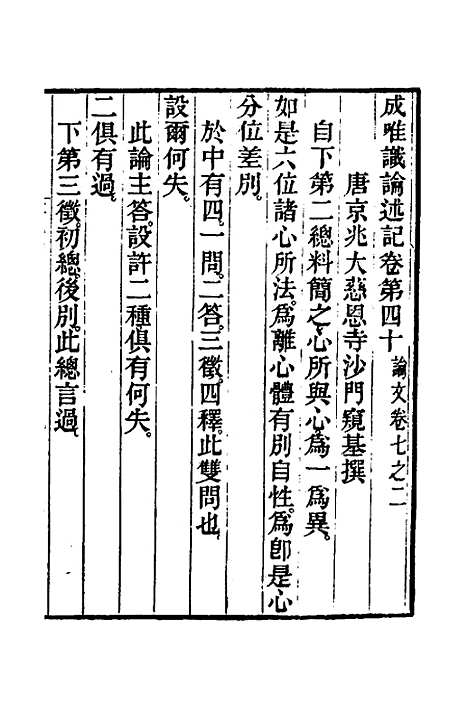 成唯識論述記卷第四十 論文卷七之二
唐京兆大慈恩寺沙門窺基撰
自下第二總料簡之心所與心爲一爲異。
如是六位諸心所法。爲離心體有別自性。爲卽是心
分位差別。
於中有四。一問。二答。三徵。四釋。此雙問也。
設爾何失。
此論主答。設許二種俱有何失。
二俱有過。
下第三徵。初總後別。此總言過。